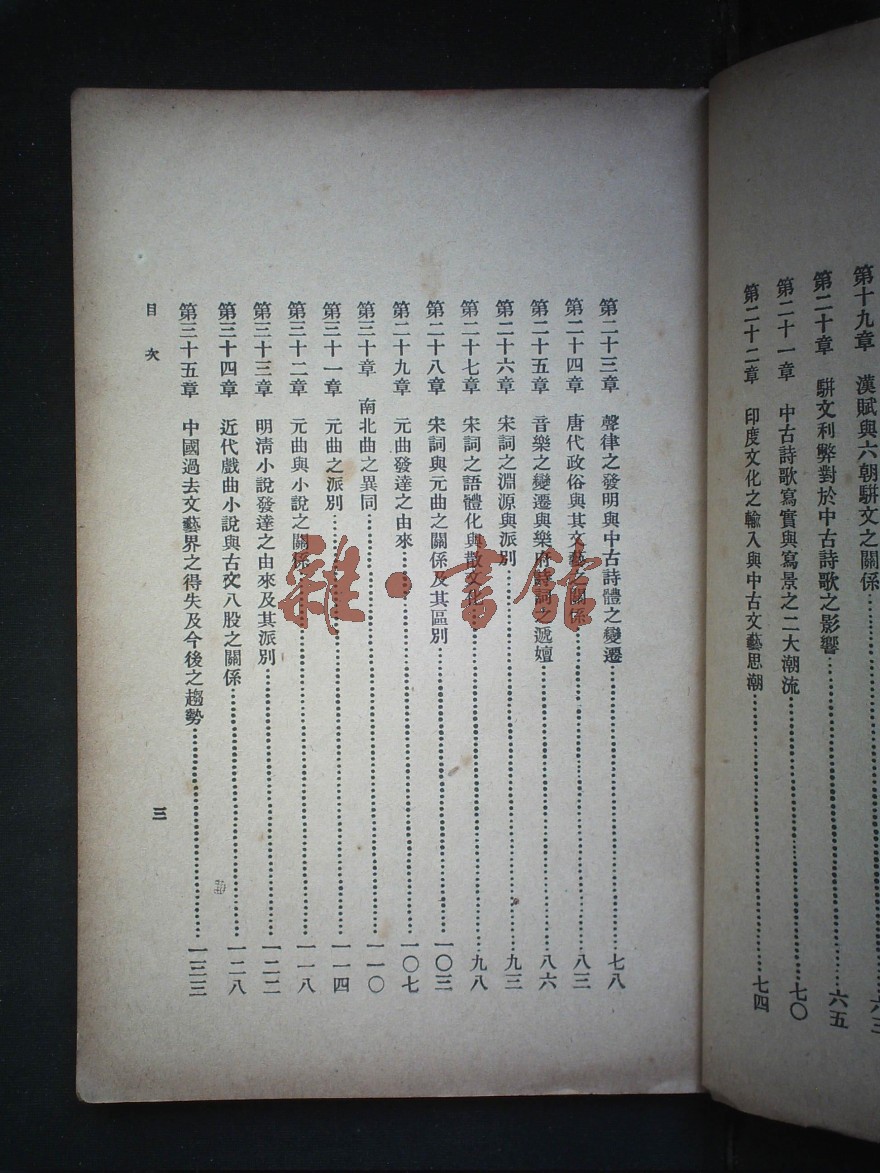 第十九章　漢賦與六朝騈文之關係…………六三
第二十章　騈文利弊對於中古詩歌之影響…………六五
第二十一章　中古詩歌寫實與寫景之二大潮流…………七〇
第二十二章　印度文化之輸入與中古文藝思潮…………七四
第二十三章　聲律之發明與中古詩體之變遷…………七八
第二十四章　唐代政俗與其文藝之關係…………八三
第二十五章　音樂之變遷與樂府詩詞之遞嬗…………八六
第二十六章　宋詞之淵源與派別…………九三
第二十七章　宋詞之語體化與散文化…………九八
第二十八章　宋詞與元曲之關係及其區別…………一〇三
第二十九章　元曲發達之由來…………一〇七
第三十章　南北曲之異同…………一一〇
第三十一章　元曲之派別…………一一四
第三十二章　元曲與小說之關係…………一一八
第三十三章　明清小說發達之由來及其派別…………一二二
第三十四章　近代戲曲小說與古文八股之關係…………一二八
第三十五章　中國過去文藝界之得失及今後之趨勢…………一三三
目次
三
雜·書館